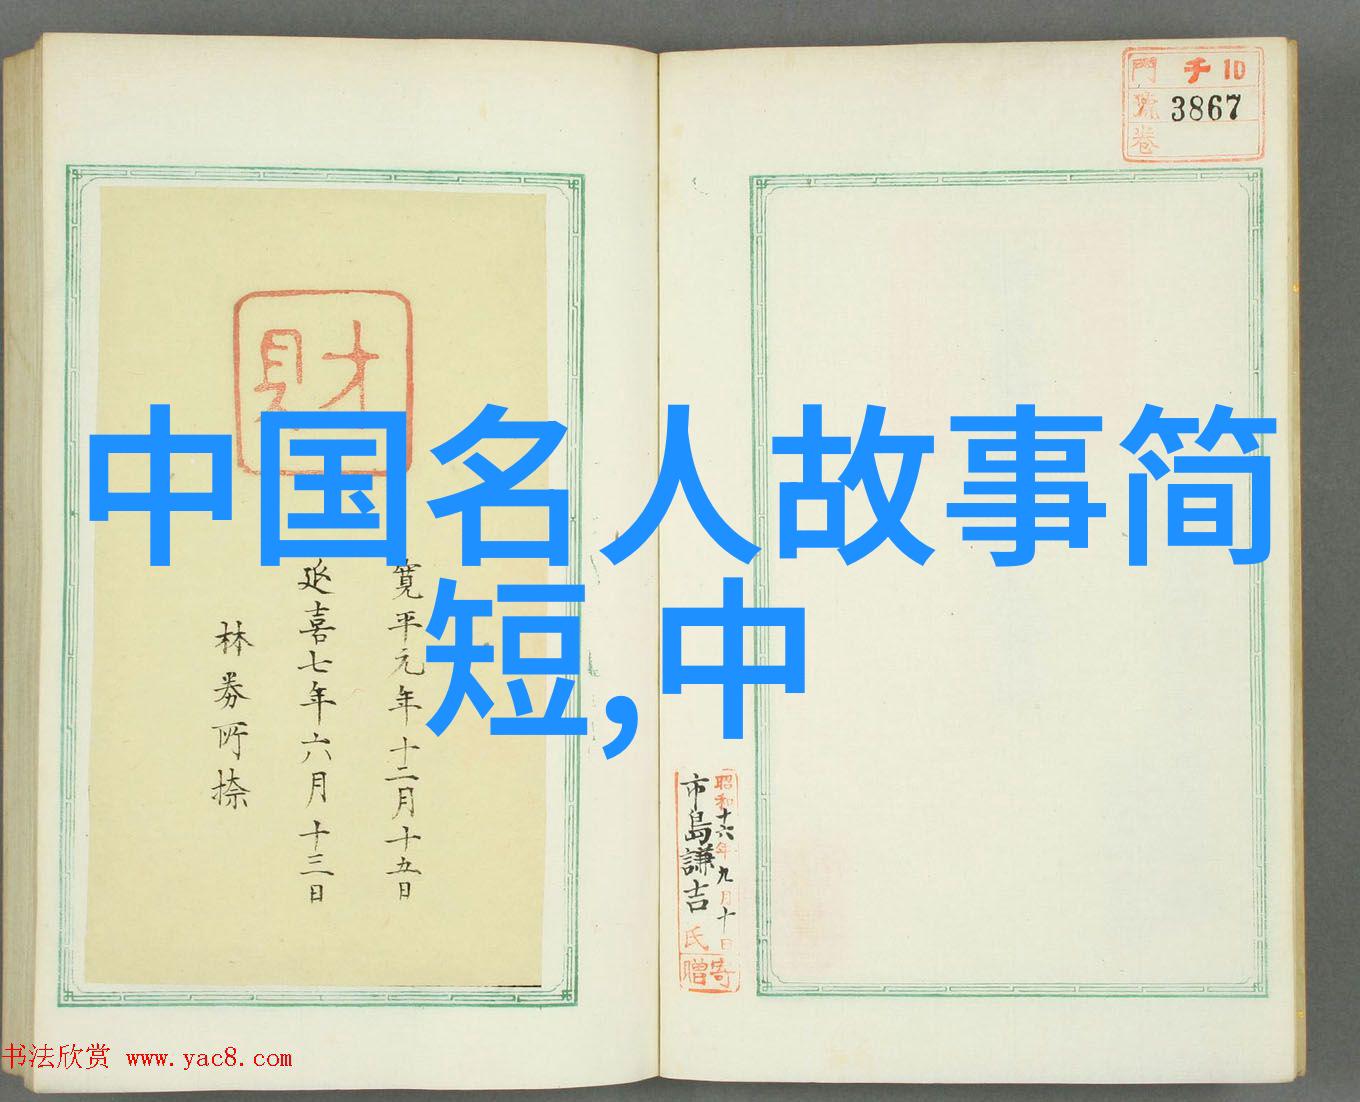 門 千 10
號 3867
卷
財
中国名人故事简
短,中
寛平元年十二月十五日
延喜七年六月十三日
林券所捺
昭和十六年九月十日
市島謙吉氏寄贈
书法欣赏 www.yac8.com